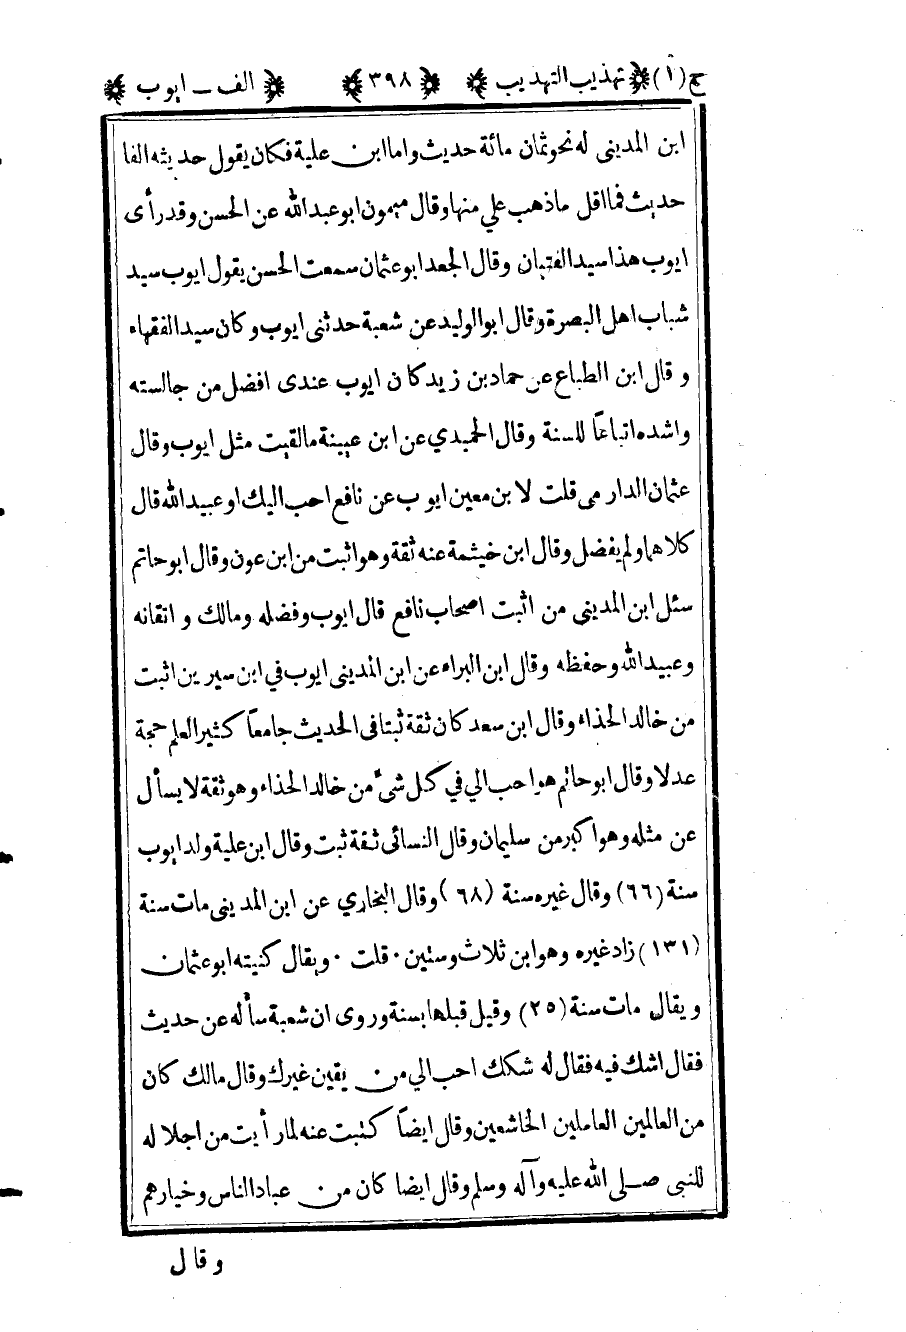 ج (١) تهذيب التهذيب ٣٩٨ الف ــ ايوب
ابن المديني له نحو ثمان مائة حديث واما ابن علية فكان يقول حديثه الفا
حديث فما اقل ما ذهب علي منها وقال ميمون ابو عبد الله عن الحسن وقد رأى
ايوب هذا سيد الفتيان وقال الجعد ابو عثمان سمعت الحسن يقول ايوب سيد
شباب اهل البصرة وقال ابو الوليد عن شعبة حدثني ايوب وكان سيد الفقهاء
وقال ابن الطباع عن حماد بن زيد كان ايوب عندى افضل من جالسته
واشده اتباعاً للسنة وقال الحميدي عن ابن عيينة ما لقيت مثل ايوب وقال
عثمان الدارمى قلت لابن معين ايوب عن نافع احب اليك او عبيد الله قال
كلاهما ولم يفضل وقال ابن خيثمة عنه ثقة وهو اثبت من ابن عون وقال ابو حاتم
سئل ابن المديني من اثبت اصحاب نافع قال ايوب وفضله ومالك واتقانه
وعبيد الله وحفظه وقال ابن البراء عن ابن المديني ايوب في ابن سيرين اثبت
من خالد الحذاء وقال ابن سعد كان ثقة ثبتا فى الحديث جامعاً كثير العلم حجة
عدلا وقال ابو حاتم هو احب الي في كل شيء من خالد الحذاء وهو ثقة لا يسأل
عن مثله وهو اكبر من سليمان وقال النسائى ثقة ثبت وقال ابن علية ولد ايوب
سنة (٦٦) وقال غيره سنة (٦٨) وقال البخاري عن ابن المديني مات سنة
(١٣١) زاد غيره وهو ابن ثلاث وستين ٠ قلت ٠ ويقال كنيته ابو عثمان
ويقال مات سنة (٢٥) وقيل قبلها بسنة وروى ان شعبة سأله عن حديث
فقال اشك فيه فقال له شكك احب الي من يقين غيرك وقال مالك كان
من العالمين العاملين الخاشعين وقال ايضاً كتبت عنه لما رأيت من اجلاله
للنبي صلى الله عليه وآله وسلم وقال ايضا كان من عباد الناس وخيارهم
وقال